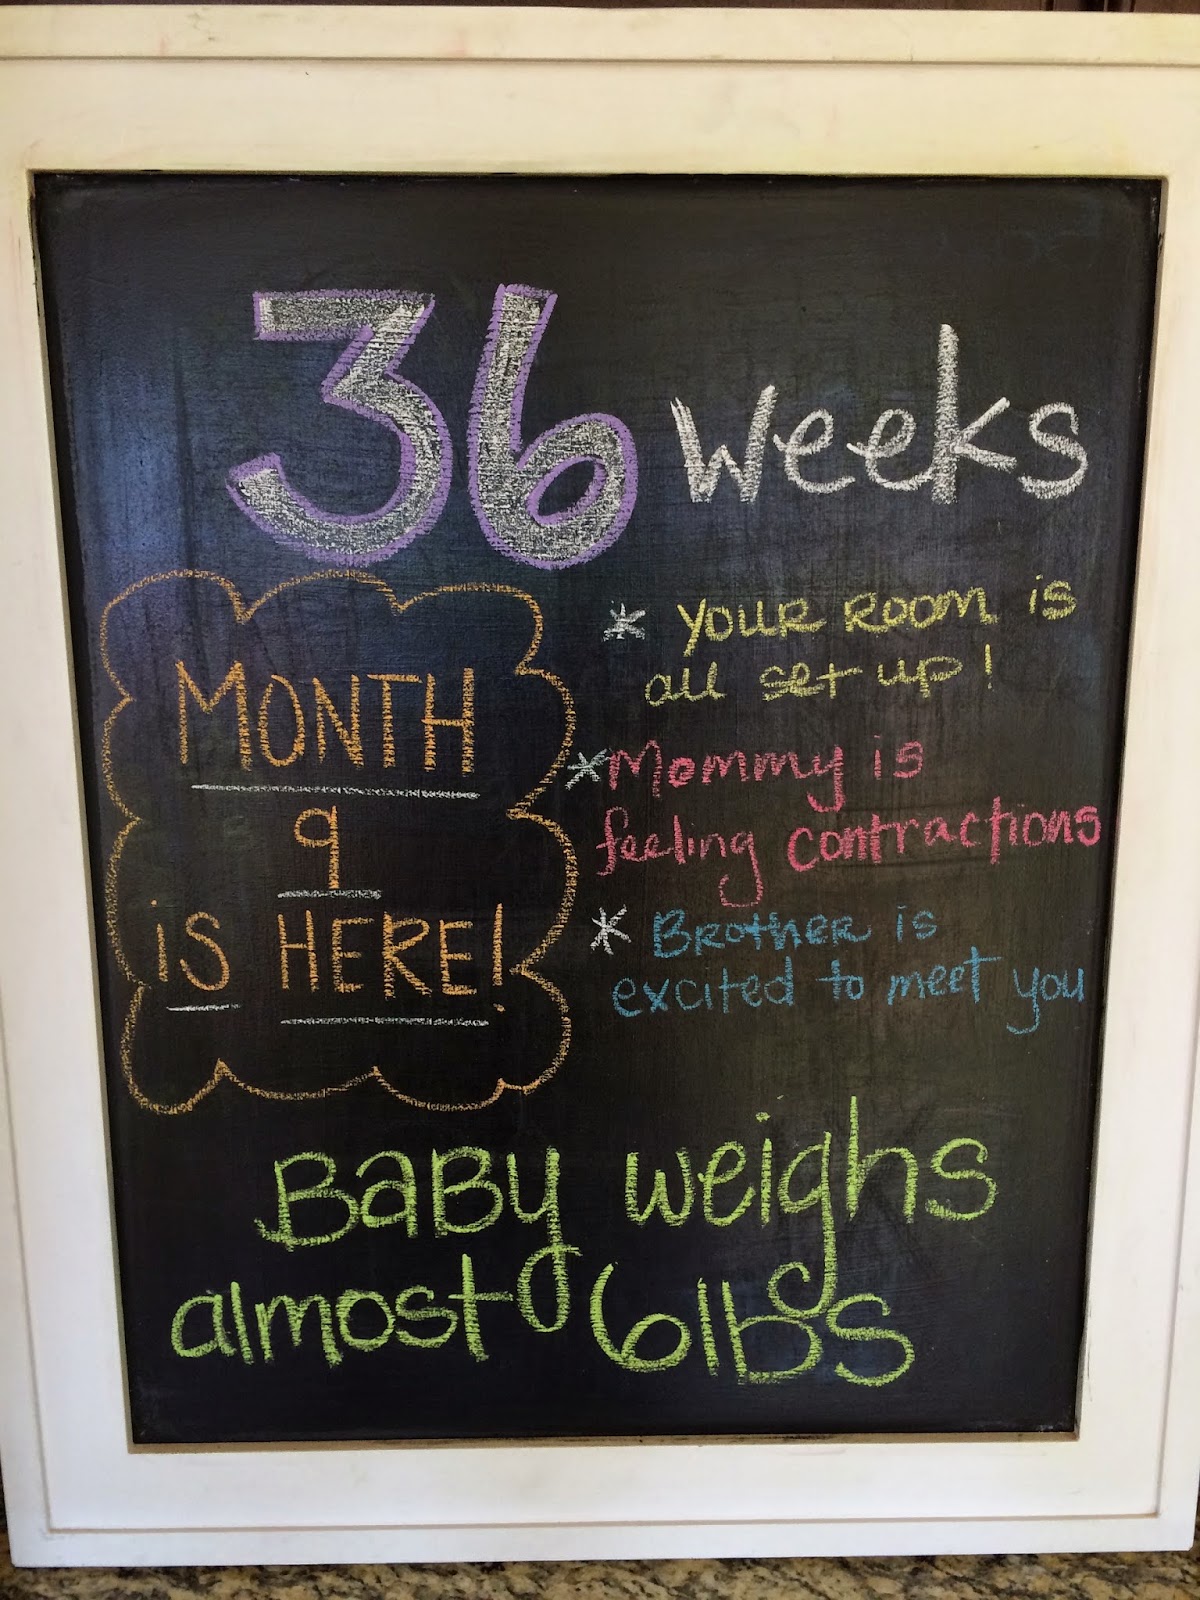 36 weeks
MONTH
9
iS HERE!
* YOUR ROOM is
all set up!
*Mommy is
feeling contractions
* BROTHER is
excited to meet you
BaBy weighs
almost 6lbs